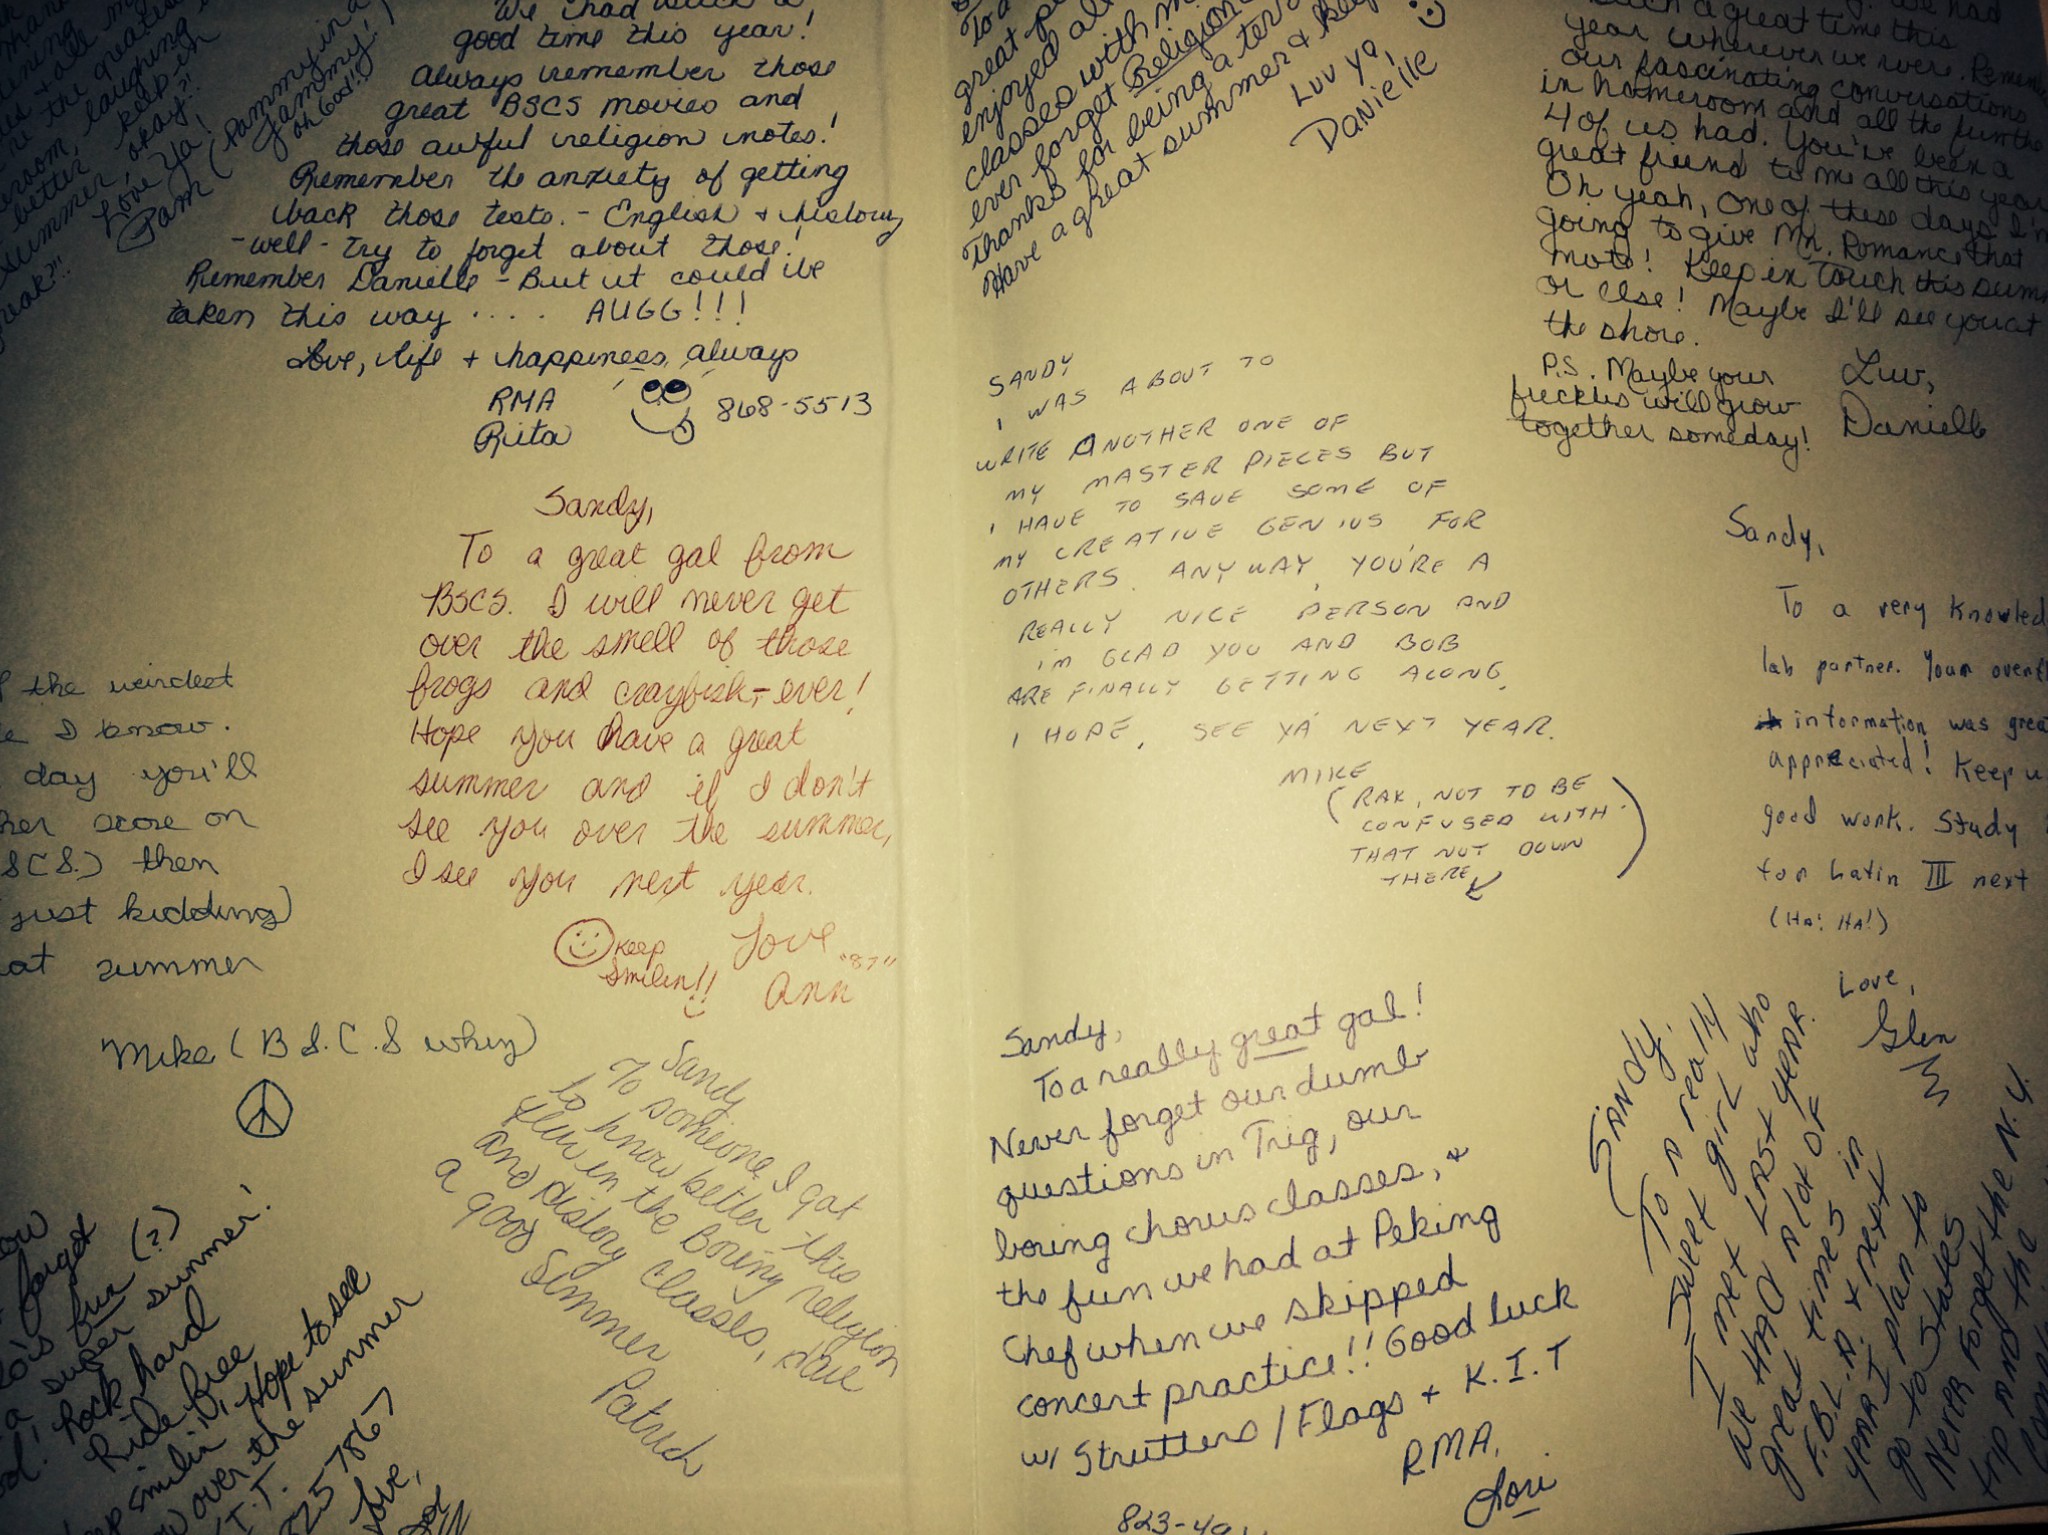 We had such a
good time this year!
Always remember those
great BSCS movies and
those awful religion notes!
Remember the anxiety of getting
back those tests. - English + history
-well- try to forget about those!
Remember Danielle - But it could be
taken this way .... AUGG!!!
Love, life + happiness always
RMA
Rita
868-5513
Love Ya!
Pam (Pammy in a
Jammy!
oh God!!)
Sandy,
To a great gal from
BSCS. I will never get
over the smell of those
frogs and crayfish - ever!
Hope you have a great
summer and if I don't
see you over the summer,
I see you next year.
Keep
Smilen!!
Love
"87"
Ann
the weirdest
I know.
day you'll
score on
then
just kidding)
at summer
Mike (B.S.C.S whiz)
Sandy
To someone I got
to know better this
year in the Boring religion
and history classes, have
a good Summer
Patrick
forget
fun (?)
a super summer!
Rock hard
Ride Free
smilin', Hope to see
over the summer
8257867
Love,
great
enjoyed
classes with
ever forget Religion
Thanks for being a
Have a great summer & keep
Luv Ya,
Danielle
SANDY
I WAS ABOUT TO
WRITE ANOTHER ONE OF
MY MASTER PIECES BUT
I HAVE TO SAVE SOME OF
MY CREATIVE GENIUS FOR
OTHERS. ANYWAY, YOU'RE A
REALLY NICE PERSON AND
I'M GLAD YOU AND BOB
ARE FINALLY GETTING ALONG,
I HOPE, SEE YA NEXT YEAR.
MIKE
(RAK, NOT TO BE
CONFUSED WITH
THAT NUT DOWN
THERE)
Sandy,
To a really great gal!
Never forget our dumb
questions in Trig, our
boring chorus classes, +
the fun we had at Peking
Chef when we skipped
concert practice!! Good luck
w/ Strutters/Flags + K.I.T
RMA,
Lori
823-
had
such a great time this
year wherever we were. Remember
our fascinating conversations
in homeroom and all the fun the
4 of us had. You've been a
great friend to me all this year
Oh yeah, one of these days I'm
going to give Mr. Romance that
note! Keep in touch this
or else! Maybe I'll see you at
the shore.
P.S. Maybe your
freckles will grow
together someday!
Luv,
Danielle
Sandy,
To a very
lab partner. Your
information was
appreciated! Keep
good work. Study
for Latin III next
(HA! HA!)
Love,
Glen
SANDY.
To A really
Sweet girl who
I met LAST YEAR.
We HAD A lot OF
great times in
F.B.L.A. & next
YEAR I plan to
go to States
Never Forget the N.Y.
trip AND the